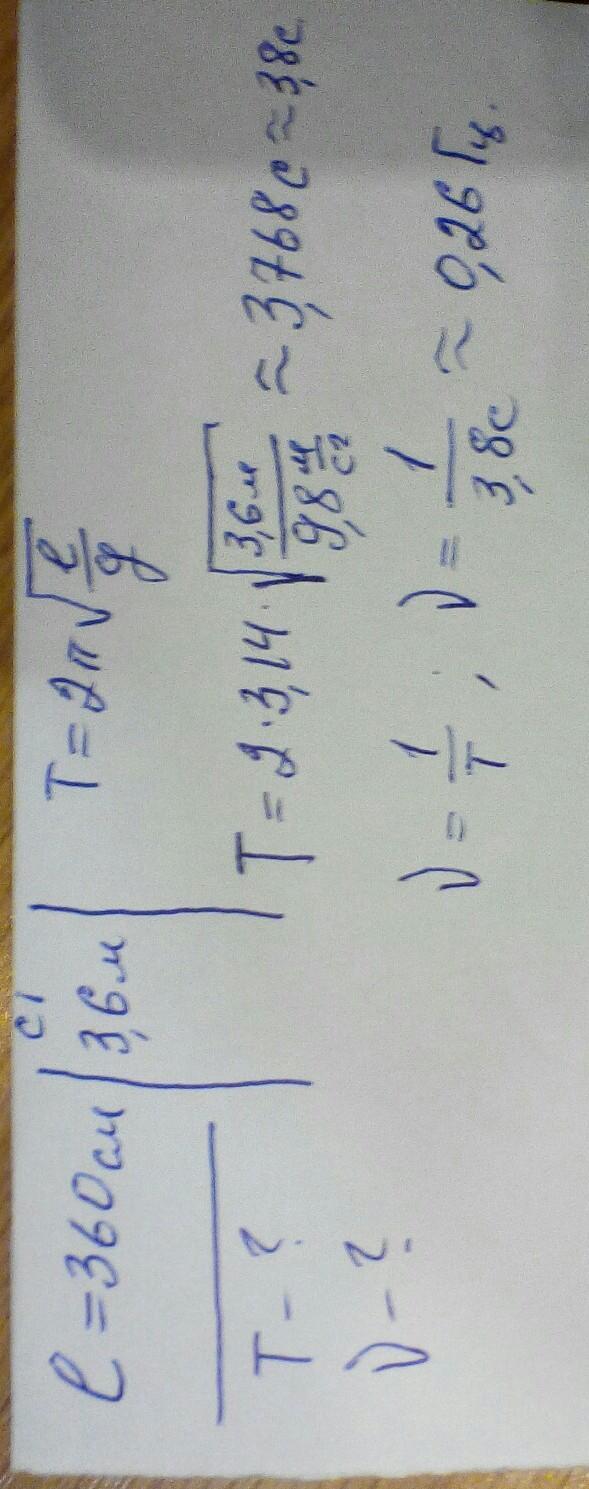 l = 360 см | СИ 3,6 м | T = 2π√(l/g)
T - ?
ν - ?
T = 2 · 3,14 · √(3,6 м / 9,8 м/с²) ≈ 3,768 с ≈ 3,8 с
ν = 1/T ; ν = 1/3,8с ≈ 0,26 Гц.